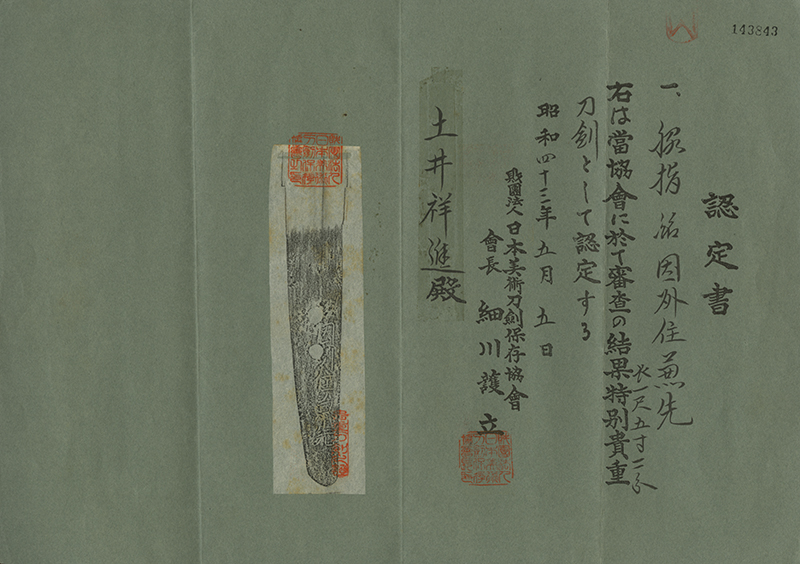 143843
認定書
一、脇指 銘 因州住兼先
長一尺五寸二分
右は當協會に於て審査の結果特別貴重
刀劍として認定する
昭和四十三年五月五日
財團法人日本美術刀劍保存協會
會長 細川護立
土井祥進殿